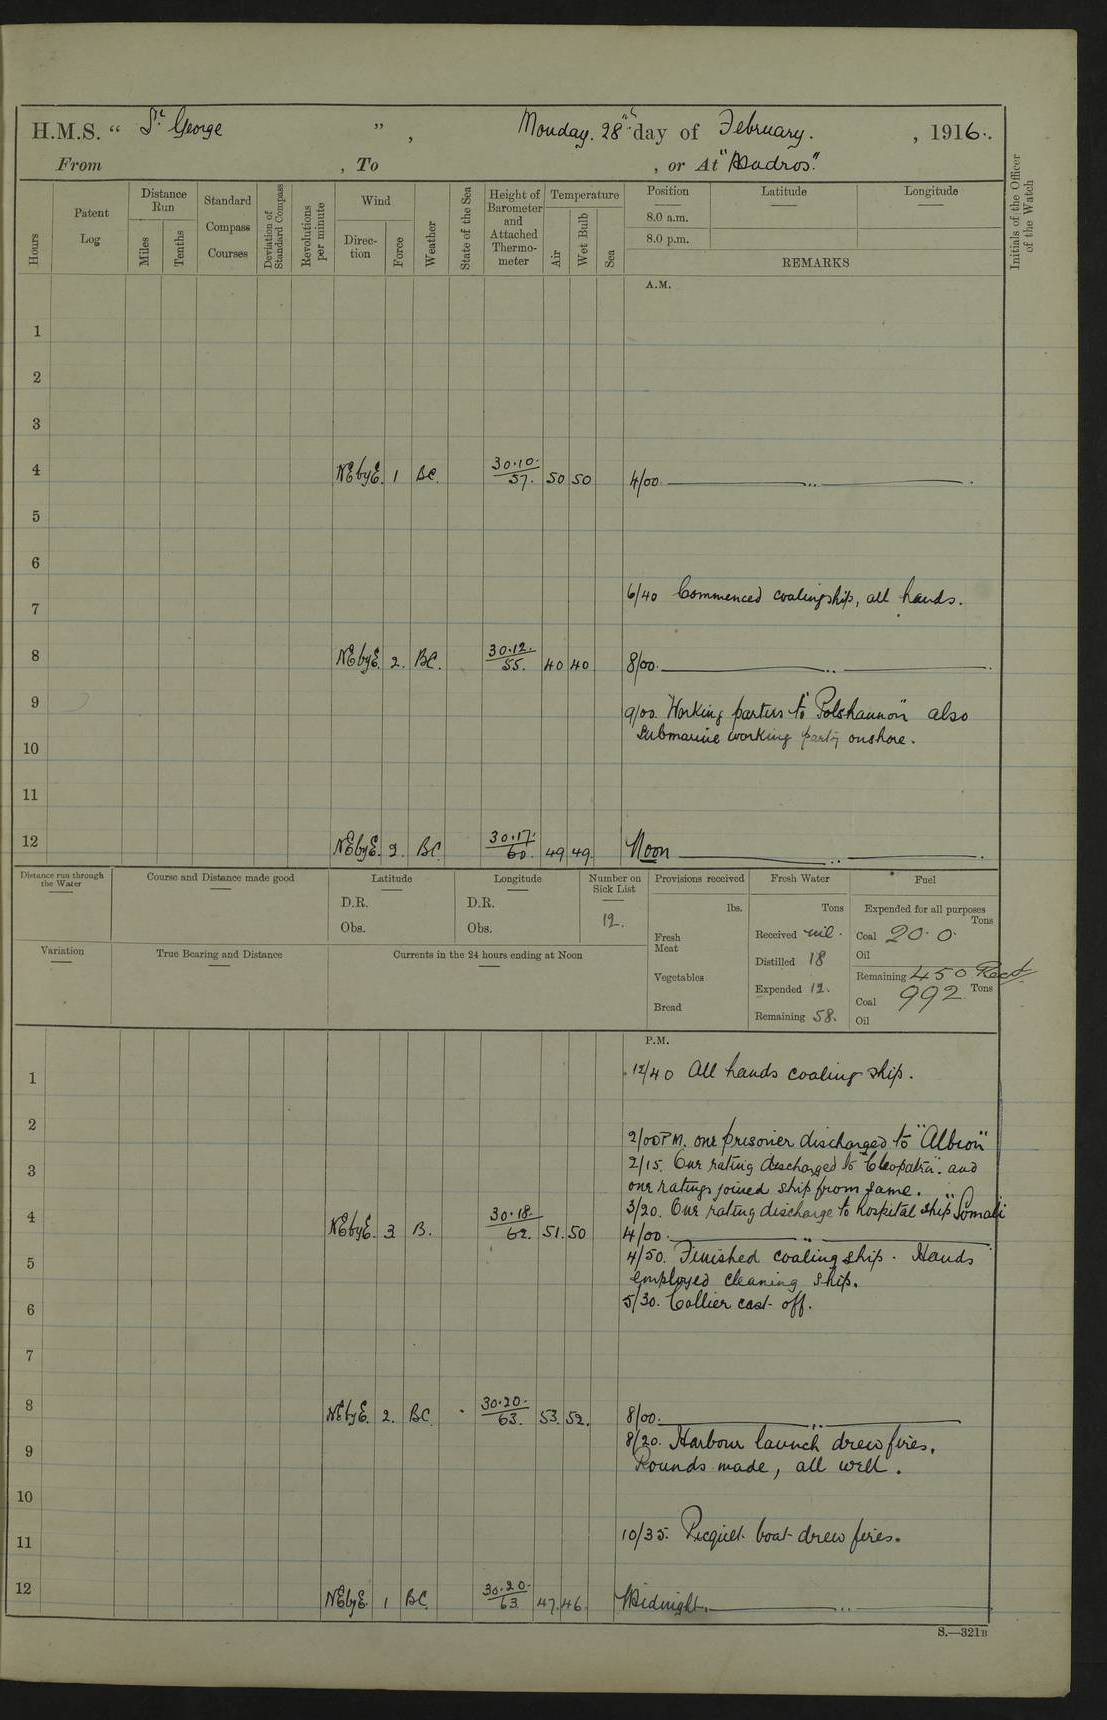 H.M.S. “ St. George ” , Monday. 28th day of February. , 1916.
From , To , or At "Mudros".
Hours
Patent Log
Distance Run
Miles
Tenths
Standard Compass Courses
Deviation of Standard Compass
Revolutions per minute
Wind
Direction
Force
Weather
State of the Sea
Height of Barometer and Attached Thermometer
Temperature
Air
Wet Bulb
Sea
Position Latitude Longitude
8.0 a.m.
8.0 p.m.
REMARKS
Initials of the Officer of the Watch
A.M.
1
2
3
4 NEbyE. 1 BC. 30.10. 57. 50 50 4/00.
5
6
6/40 Commenced coaling ship, all hands.
7
8 NEbyE. 2. BC. 30.12. 55. 40 40 8/00.
9
9/00. Working parties to "Polshannon" also
Submarine working party onshore.
10
11
12 NEbyE. 2. BC. 30.17. 60. 49 49. Noon
Distance run through the Water
Course and Distance made good
Latitude
D.R.
Obs.
Longitude
D.R.
Obs.
Number on Sick List
12.
Provisions received
lbs.
Fresh Meat
Vegetables
Bread
Fresh Water
Tons
Received nil.
Distilled 18
Expended 12.
Remaining 58.
Fuel
Expended for all purposes
Tons
Coal 20.0
Oil
Remaining 450 Recd
Tons
Coal 992
Oil
Variation
True Bearing and Distance
Currents in the 24 hours ending at Noon
P.M.
12/40 All hands coaling ship.
1
2
2/00 PM. one prisoner discharged to "Albion"
2/15. One rating discharged to "Cleopatra". and
3
one ratings joined ship from same.
3/20. One rating discharge to hospital ship "Somali
4 NEbyE. 3 B. 30.18. 62. 51. 50 4/00.
4/50. Finished coaling ship. Hands
5
employed cleaning ship.
5/30. Collier cast off.
6
7
8 NEbyE. 2. BC. 30.20. 63. 53. 52. 8/00.
8/20. Harbour launch drew fires.
9
Rounds made, all well.
10
10/35. Picquet boat drew fires.
11
12 NEbyE. 1 BC. 30.20. 63 47. 46 Midnight.
S.—321B